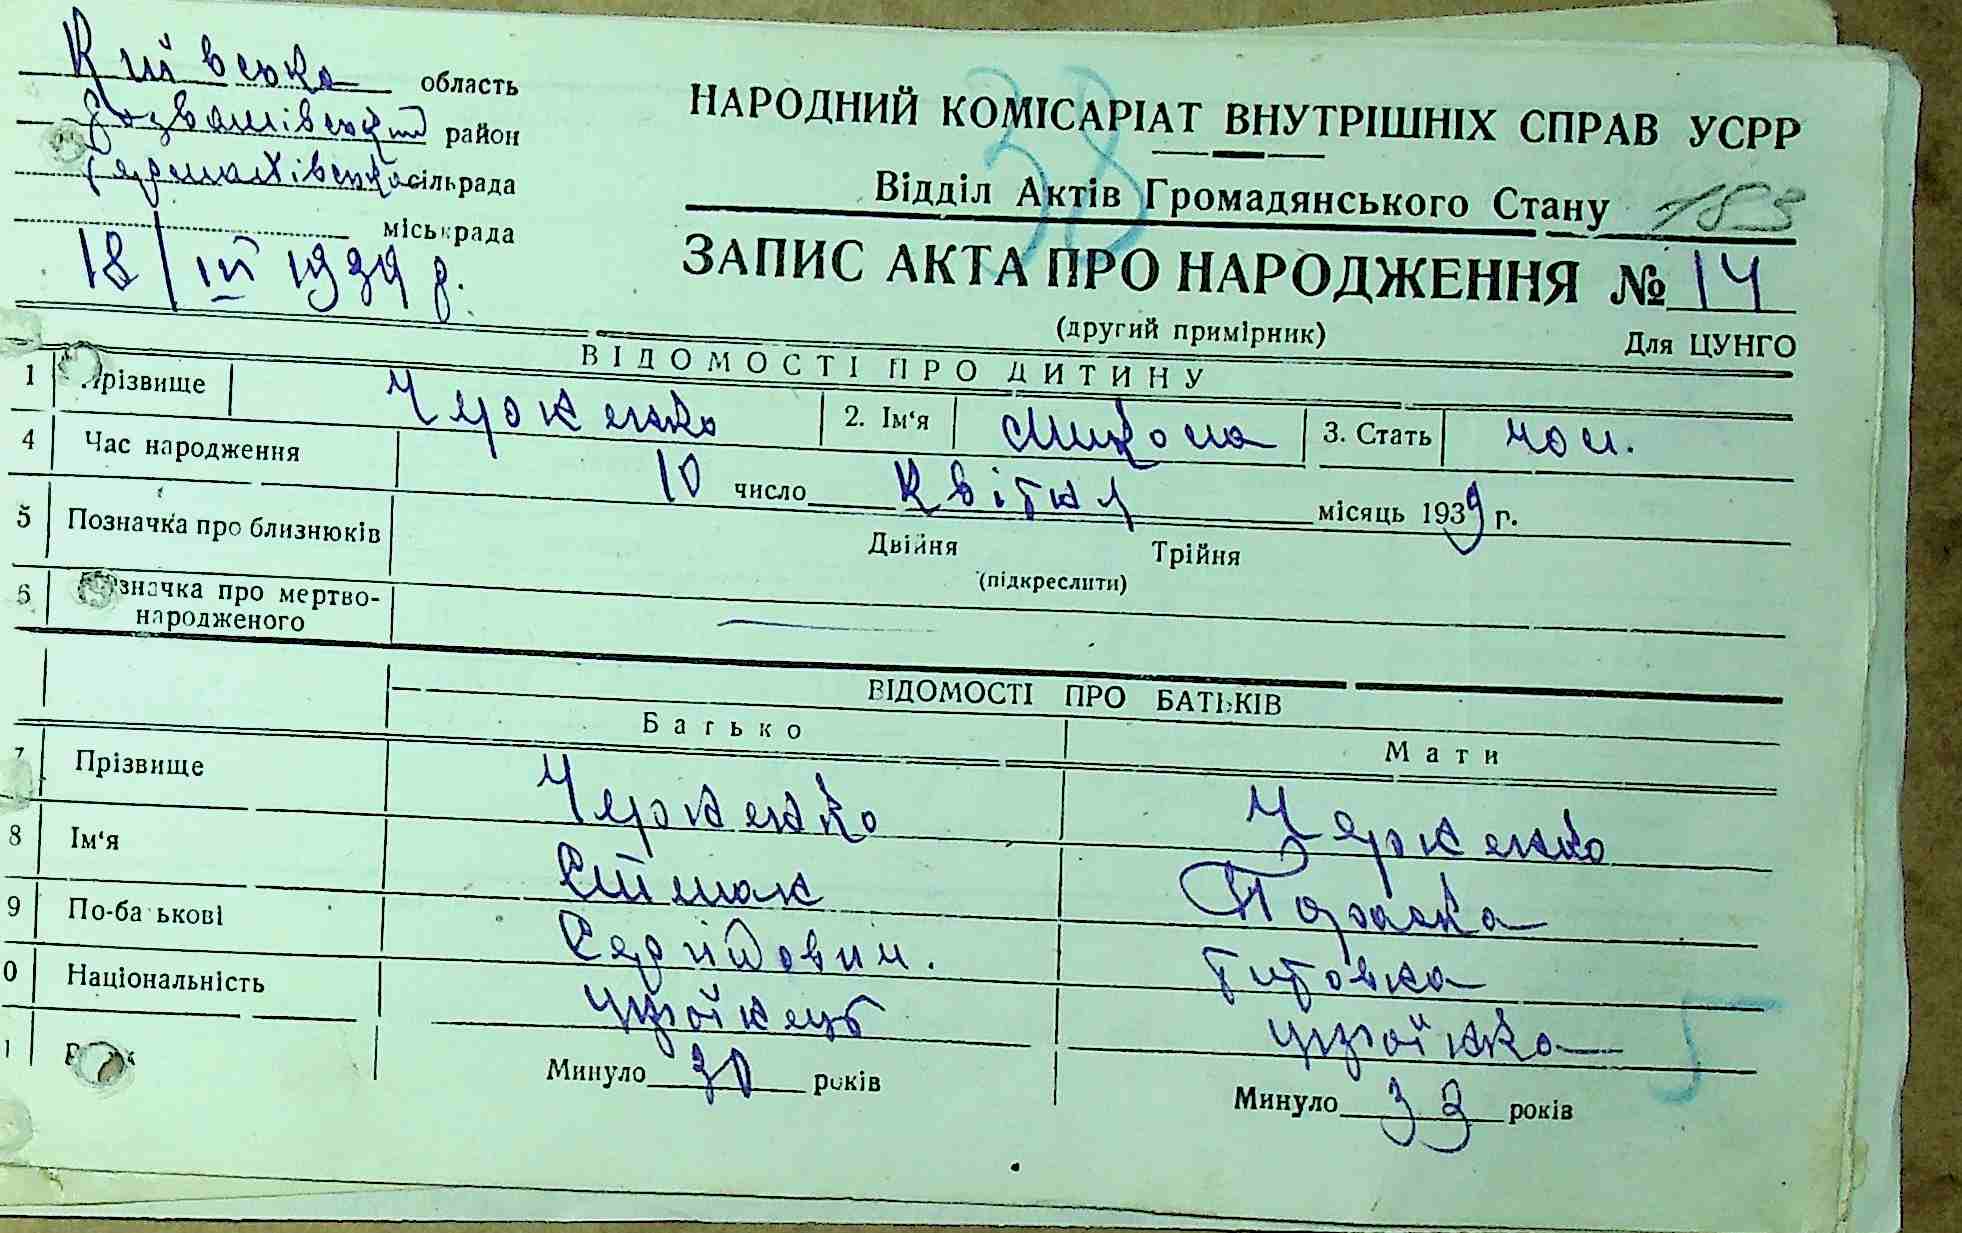 Київська область
Розважівський район
сільрада
міськрада
18/IV 1939 р.
38
НАРОДНИЙ КОМІСАРІАТ ВНУТРІШНІХ СПРАВ УСРР
Відділ Актів Громадянського Стану 185
ЗАПИС АКТА ПРО НАРОДЖЕННЯ № 14
(другий примірник) Для ЦУНГО
ВІДОМОСТІ ПРО ДИТИНУ
1 Прізвище Черненко 2. Ім‘я Микола 3. Стать чол.
4 Час народження 10 число Квітня місяць 1939 г.
5 Позначка про близнюків Двійня Трійня
(підкреслити)
6 Позначка про мертво-
народженого
ВІДОМОСТІ ПРО БАТЬКІВ
Батько Мати
7 Прізвище Черненко Черненко
8 Ім‘я Степан Параска
9 По-батькові Сергійович. Титовна
0 Національність українець українка
1 Вік Минуло 30 років Минуло 33 років